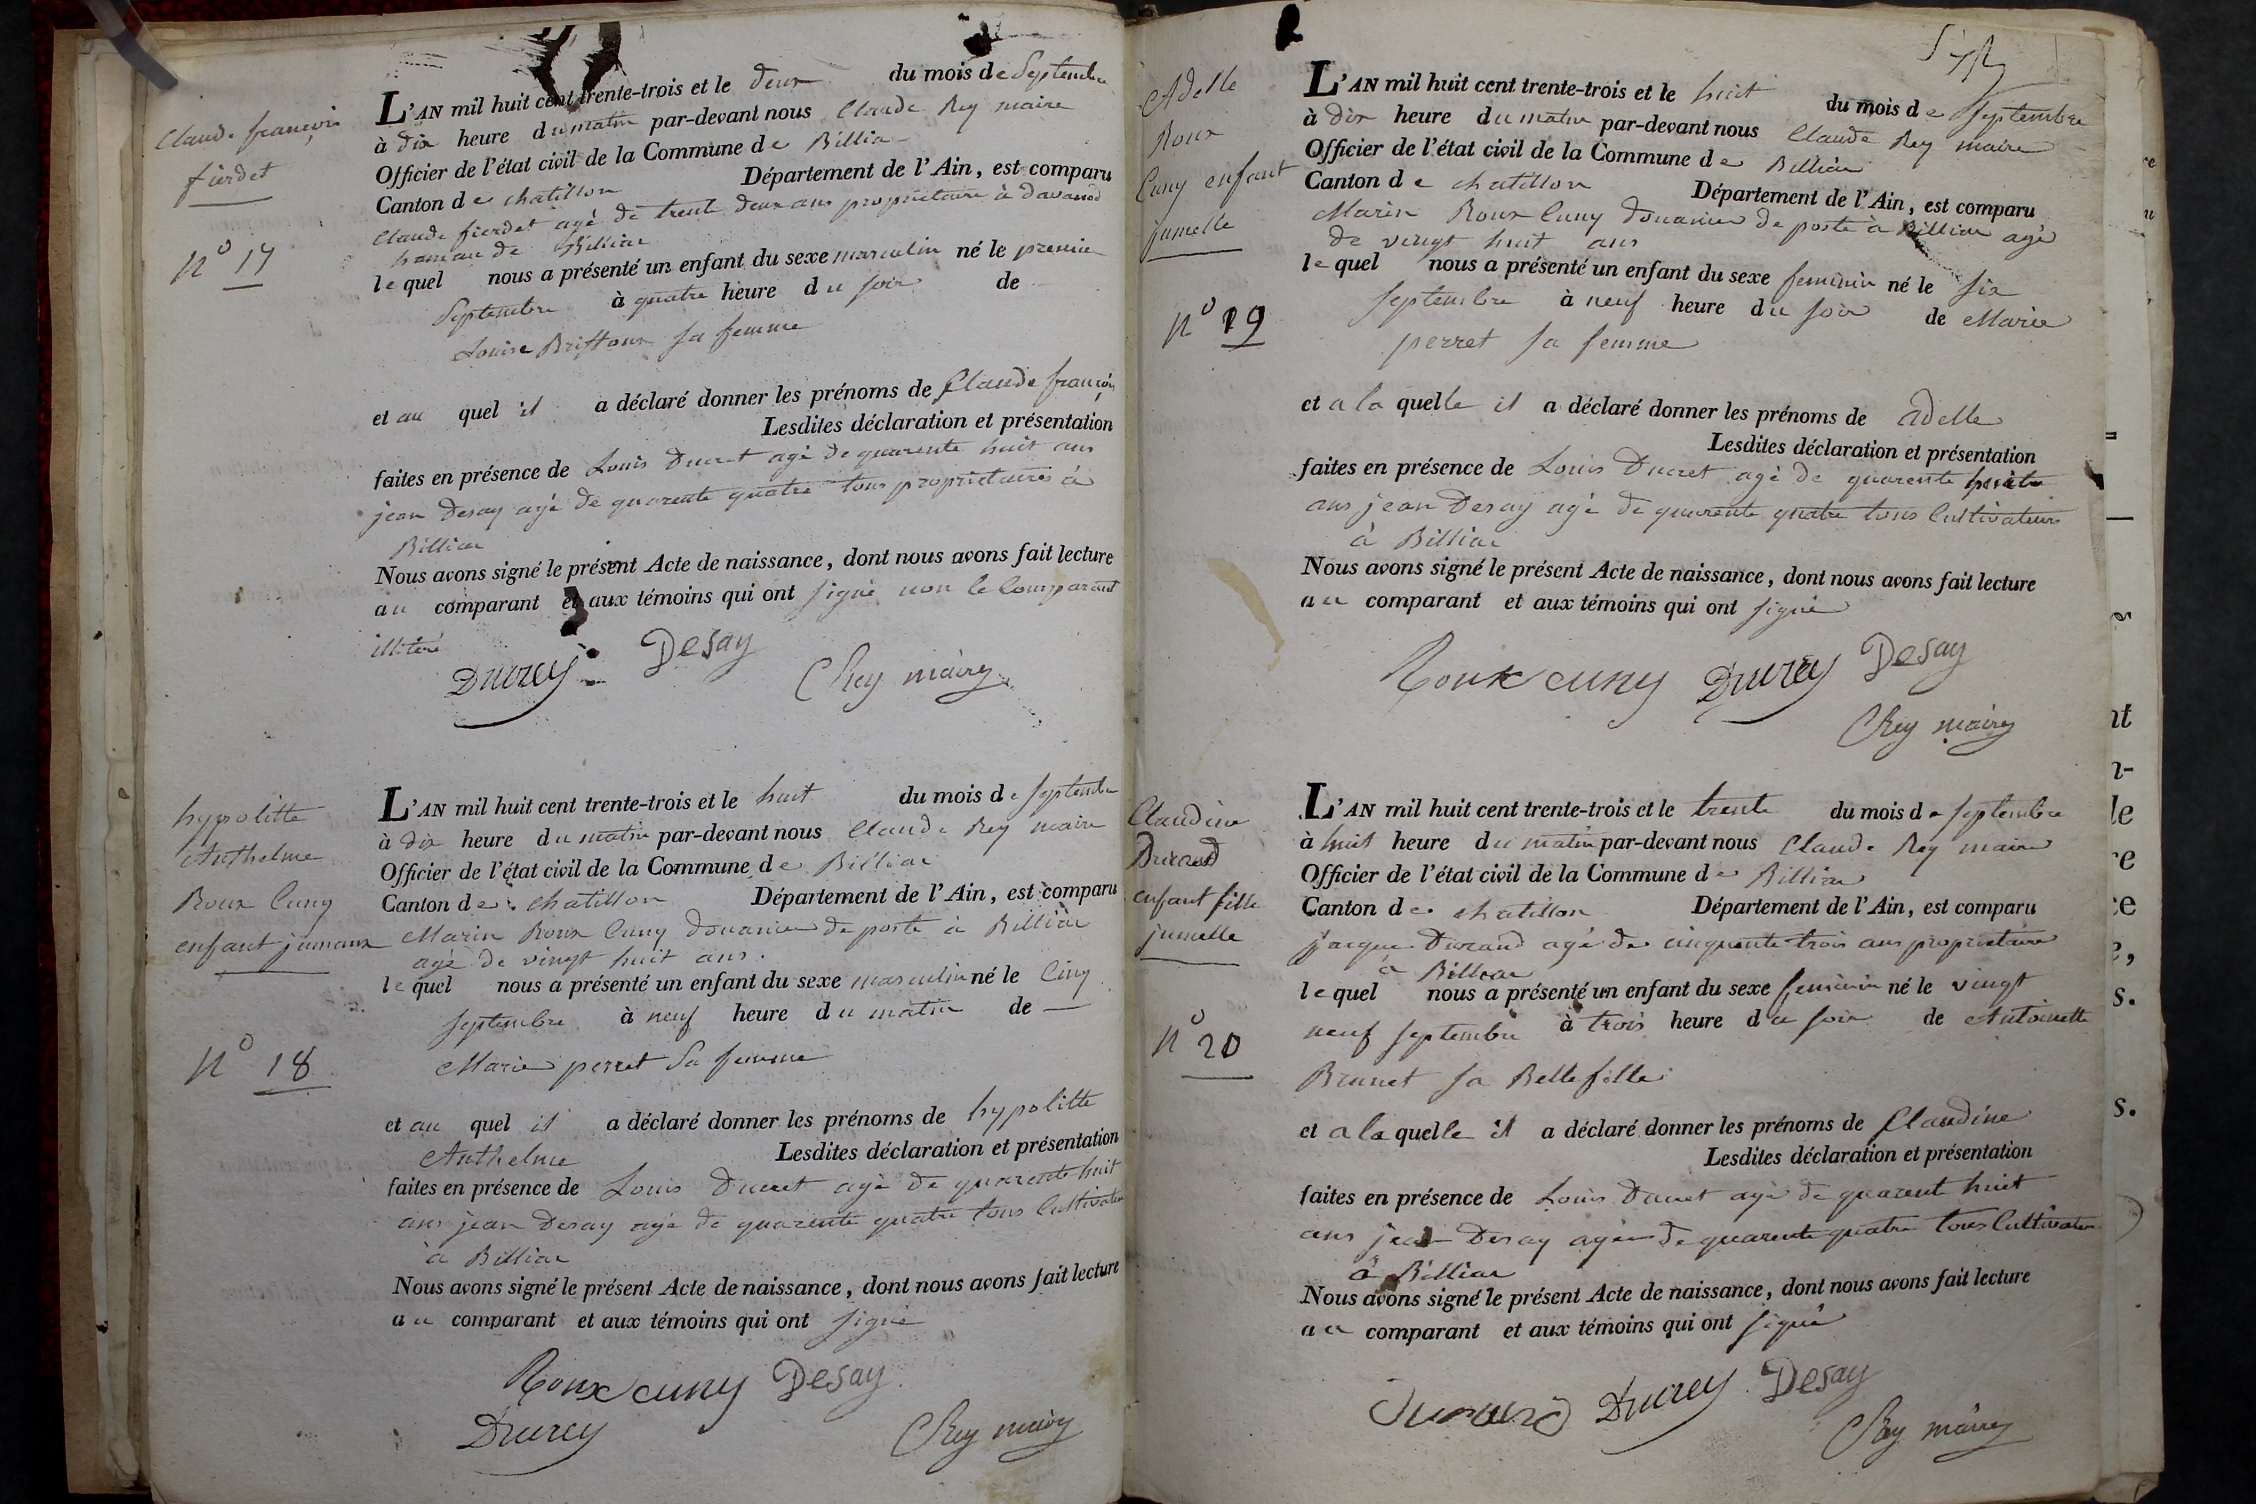 Claude françois
fierdet
N° 17
L'AN mil huit cent trente-trois et le deux du mois de Septembre
à dix heure du matin par-devant nous Claude Rey maire
Officier de l'état civil de la Commune de Billia
Canton de chatillon Département de l'Ain, est comparu
Claude fierdet agé de trente deux ans propriétaire à davanod
hamau de Billiat
lequel nous a présenté un enfant du sexe masculin né le premier
Septembre à quatre heure du soir de
Louise Brissoux sa femme
et au quel il a déclaré donner les prénoms de Claude françois
Lesdites déclaration et présentation
faites en présence de Louis Ducret agé de quarente huit ans
jean Desay agé de quarente quatre tous propriétaires à
Billiat
Nous avons signé le présent Acte de naissance, dont nous avons fait lecture
au comparant et aux témoins qui ont signé non le Comparant
illitéré
Ducrey Desay
C Rey maire
hypolitte
Anthelme
Roux Cuny
enfant jumaux
N° 18
L'AN mil huit cent trente-trois et le huit du mois de septembre
à dix heure du matin par-devant nous Claude Rey maire
Officier de l'état civil de la Commune de Billiat
Canton de chatillon Département de l'Ain, est comparu
Marin Roux Cuny douanier de poste à Billiat
agé de vingt huit ans.
lequel nous a présenté un enfant du sexe masculin né le Cinq
septembre à neuf heure du matin de
Marie perret sa femme
et au quel il a déclaré donner les prénoms de hypolitte
Anthelme Lesdites déclaration et présentation
faites en présence de Louis Ducret agé de quarente huit
ans jean Desay agé de quarente quatre tous Cultivateur
à Billiat
Nous avons signé le présent Acte de naissance, dont nous avons fait lecture
au comparant et aux témoins qui ont signé
Roux cuny Desay
Ducrey C Rey maire
Adelle
Roux
Cuny enfant
jumelle
N° 19
L'AN mil huit cent trente-trois et le huit du mois de septembre
à dix heure du matin par-devant nous Claude Rey maire
Officier de l'état civil de la Commune de Billiat
Canton de chatillon Département de l'Ain, est comparu
Marin Roux Cuny douanier de poste à Billiat agé
de vingt huit ans
lequel nous a présenté un enfant du sexe feminin né le six
septembre à neuf heure du soir de Marie
perret sa femme
et a la quelle il a déclaré donner les prénoms de adelle
Lesdites déclaration et présentation
faites en présence de Louis Ducret agé de quarente huit
ans jean Desay agé de quarente quatre tous Cultivateurs
à Billiat
Nous avons signé le présent Acte de naissance, dont nous avons fait lecture
au comparant et aux témoins qui ont signé
Roux cuny Ducrey Desay
C Rey maire
Claudine
Durand
enfant fille
jumelle
N° 20
L'AN mil huit cent trente-trois et le trente du mois de septembre
à huit heure du matin par-devant nous Claude Rey maire
Officier de l'état civil de la Commune de Billiat
Canton de chatillon Département de l'Ain, est comparu
jacque Durand agé de cinquente trois ans propriétaire
à Billiat
lequel nous a présenté un enfant du sexe feminin né le vingt
neuf septembre à trois heure du soir de Antoinette
Brunet sa Belle fille
et a la quelle il a déclaré donner les prénoms de Claudine
Lesdites déclaration et présentation
faites en présence de Louis Ducret agé de quarent huit
ans jean Desay agé de quarente quatre tous Cultivateur
à Billiat
Nous avons signé le présent Acte de naissance, dont nous avons fait lecture
au comparant et aux témoins qui ont signé
Durand Ducrey Desay
C Rey maire